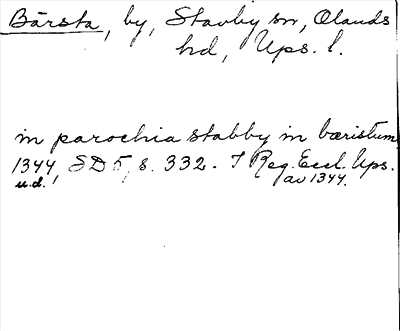 Bärsta, by, Stavby sn, Olands
hd, Ups. l.
in parochia stabby in bæristum
1344, SD 5, s. 332. I Reg. Eccl. Ups.
u.d. av 1344.